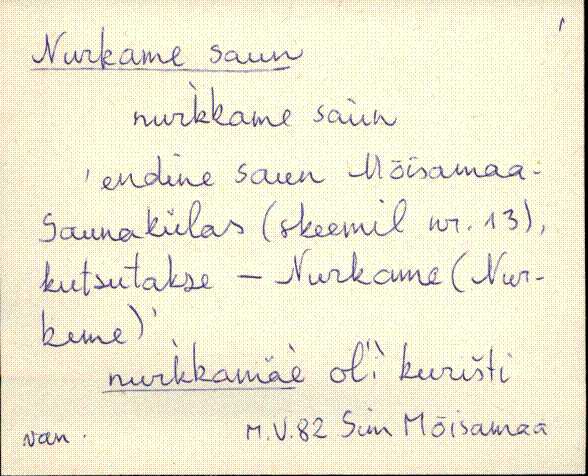 Nurkame saun
nurk̀kame saùn
'endine saun Mõisamaa-
Saunakülas (skeemil nr. 13),
kutsutakse – Nurkame (Nur-
keme)'
nurk̀kamäè ol'ì kurišti
van. M.V.82 Siim Mõisamaa